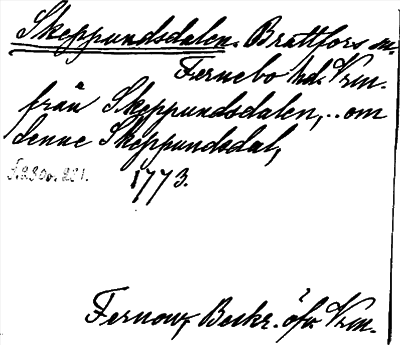 Skeppundsdalen. Brattfors sn.
Fernebo hd. Vrm.
från Skeppundsdalen,.. om
denne Skeppundsdal,
S. 230 o. 231. 1773.
Fernow, Beskr. öfv. Vrm.